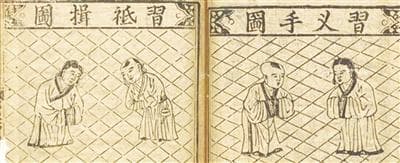 習叉手圖
習祗揖圖